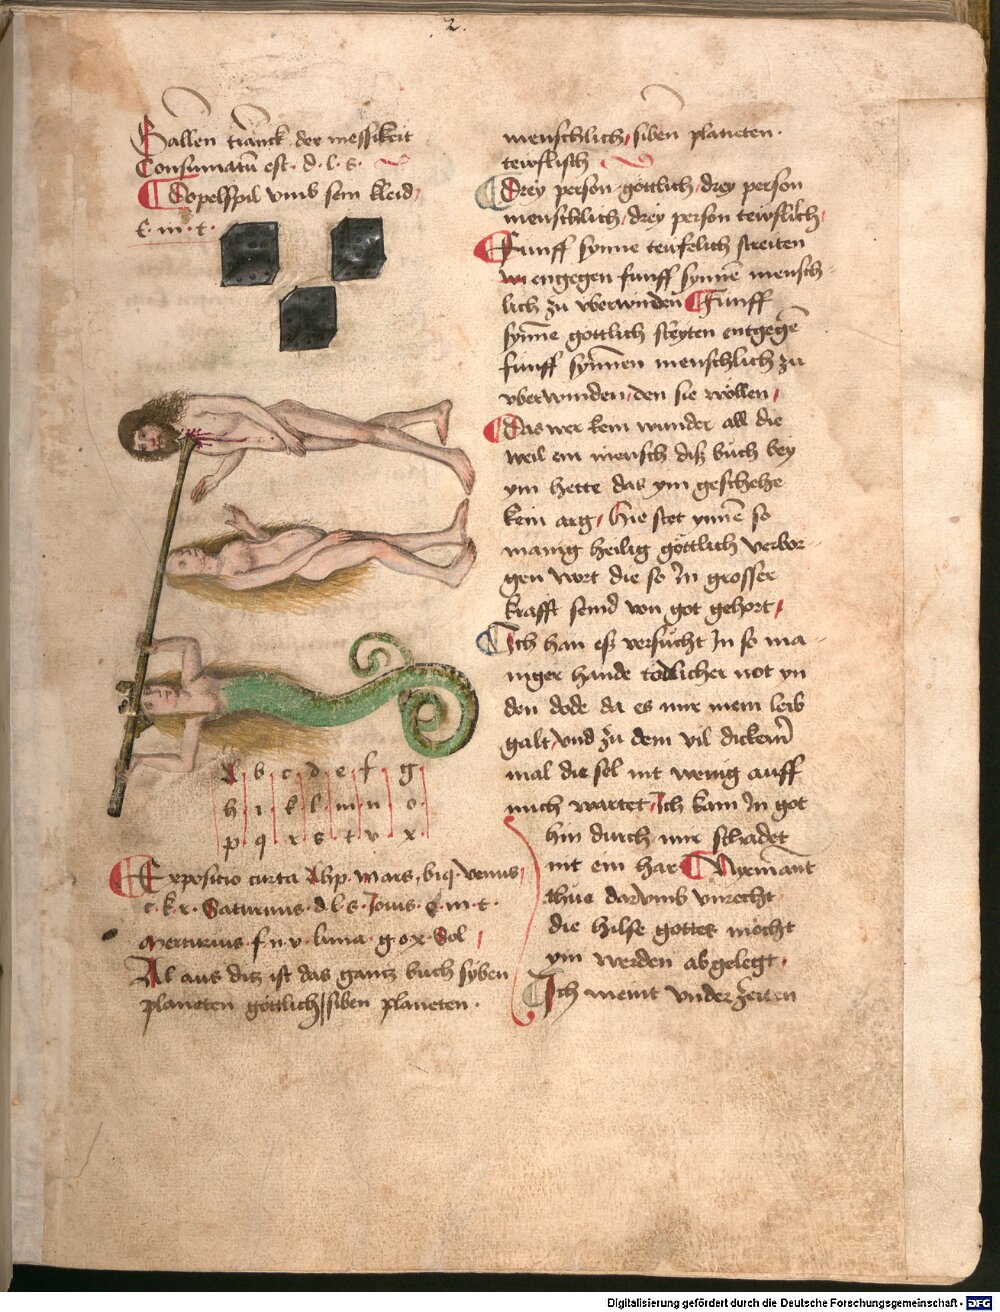 2.
Gallen tranck der messikeit
Consumatū est. d. l. s.
Topelspil vmb sein kleid
e. m. t.
A b c d e f g
h i k l m n o
p q r s t v x
Expositio curta Alhp. Mars, biq. venus,
c. k. r. Saturnus. d l s. Jouis. e. m. t.
Mercurius. f n v. luna. g o x. Sol
Al aus ditz ist das gantz buch syben
planeten gottlich, siben planeten.
menschlich, siben planeten.
tewflisch
Drey person gottlich, drey person
menschlich, drey person tewflisch,
Funff synne teufelich streiten
in engegen funff synnē mensch-
lich zu vberwinden Funff
synne gottlich streyten entgegē
funff synnen menschlich zu
vberwinden, den sie wöllen,
Das wer kein wunder all die
weil ein mensch diß buch bey
ym hette das ym geschehe
kein arg, Hie stet ynnē so
manig heilig göttlich verbor-
gen wort die so In grosser
krafft seind von got gehort,
Ich han eß versucht In so ma-
niger hande tödlicher not yn
den dode da es mir mein leib
galt, vnd zu dem vil dickern
mal die sel nit wenig auff
mich wartet, Ich kam In got
hin durch mir schadet
nit ein har Nyemant
thue darvmb vnrecht
die hilfe gottes mocht
ym werden abgelegt,
Ich meint vnder zeiten
Digitalisierung gefördert durch die Deutsche Forschungsgemeinschaft - DFG